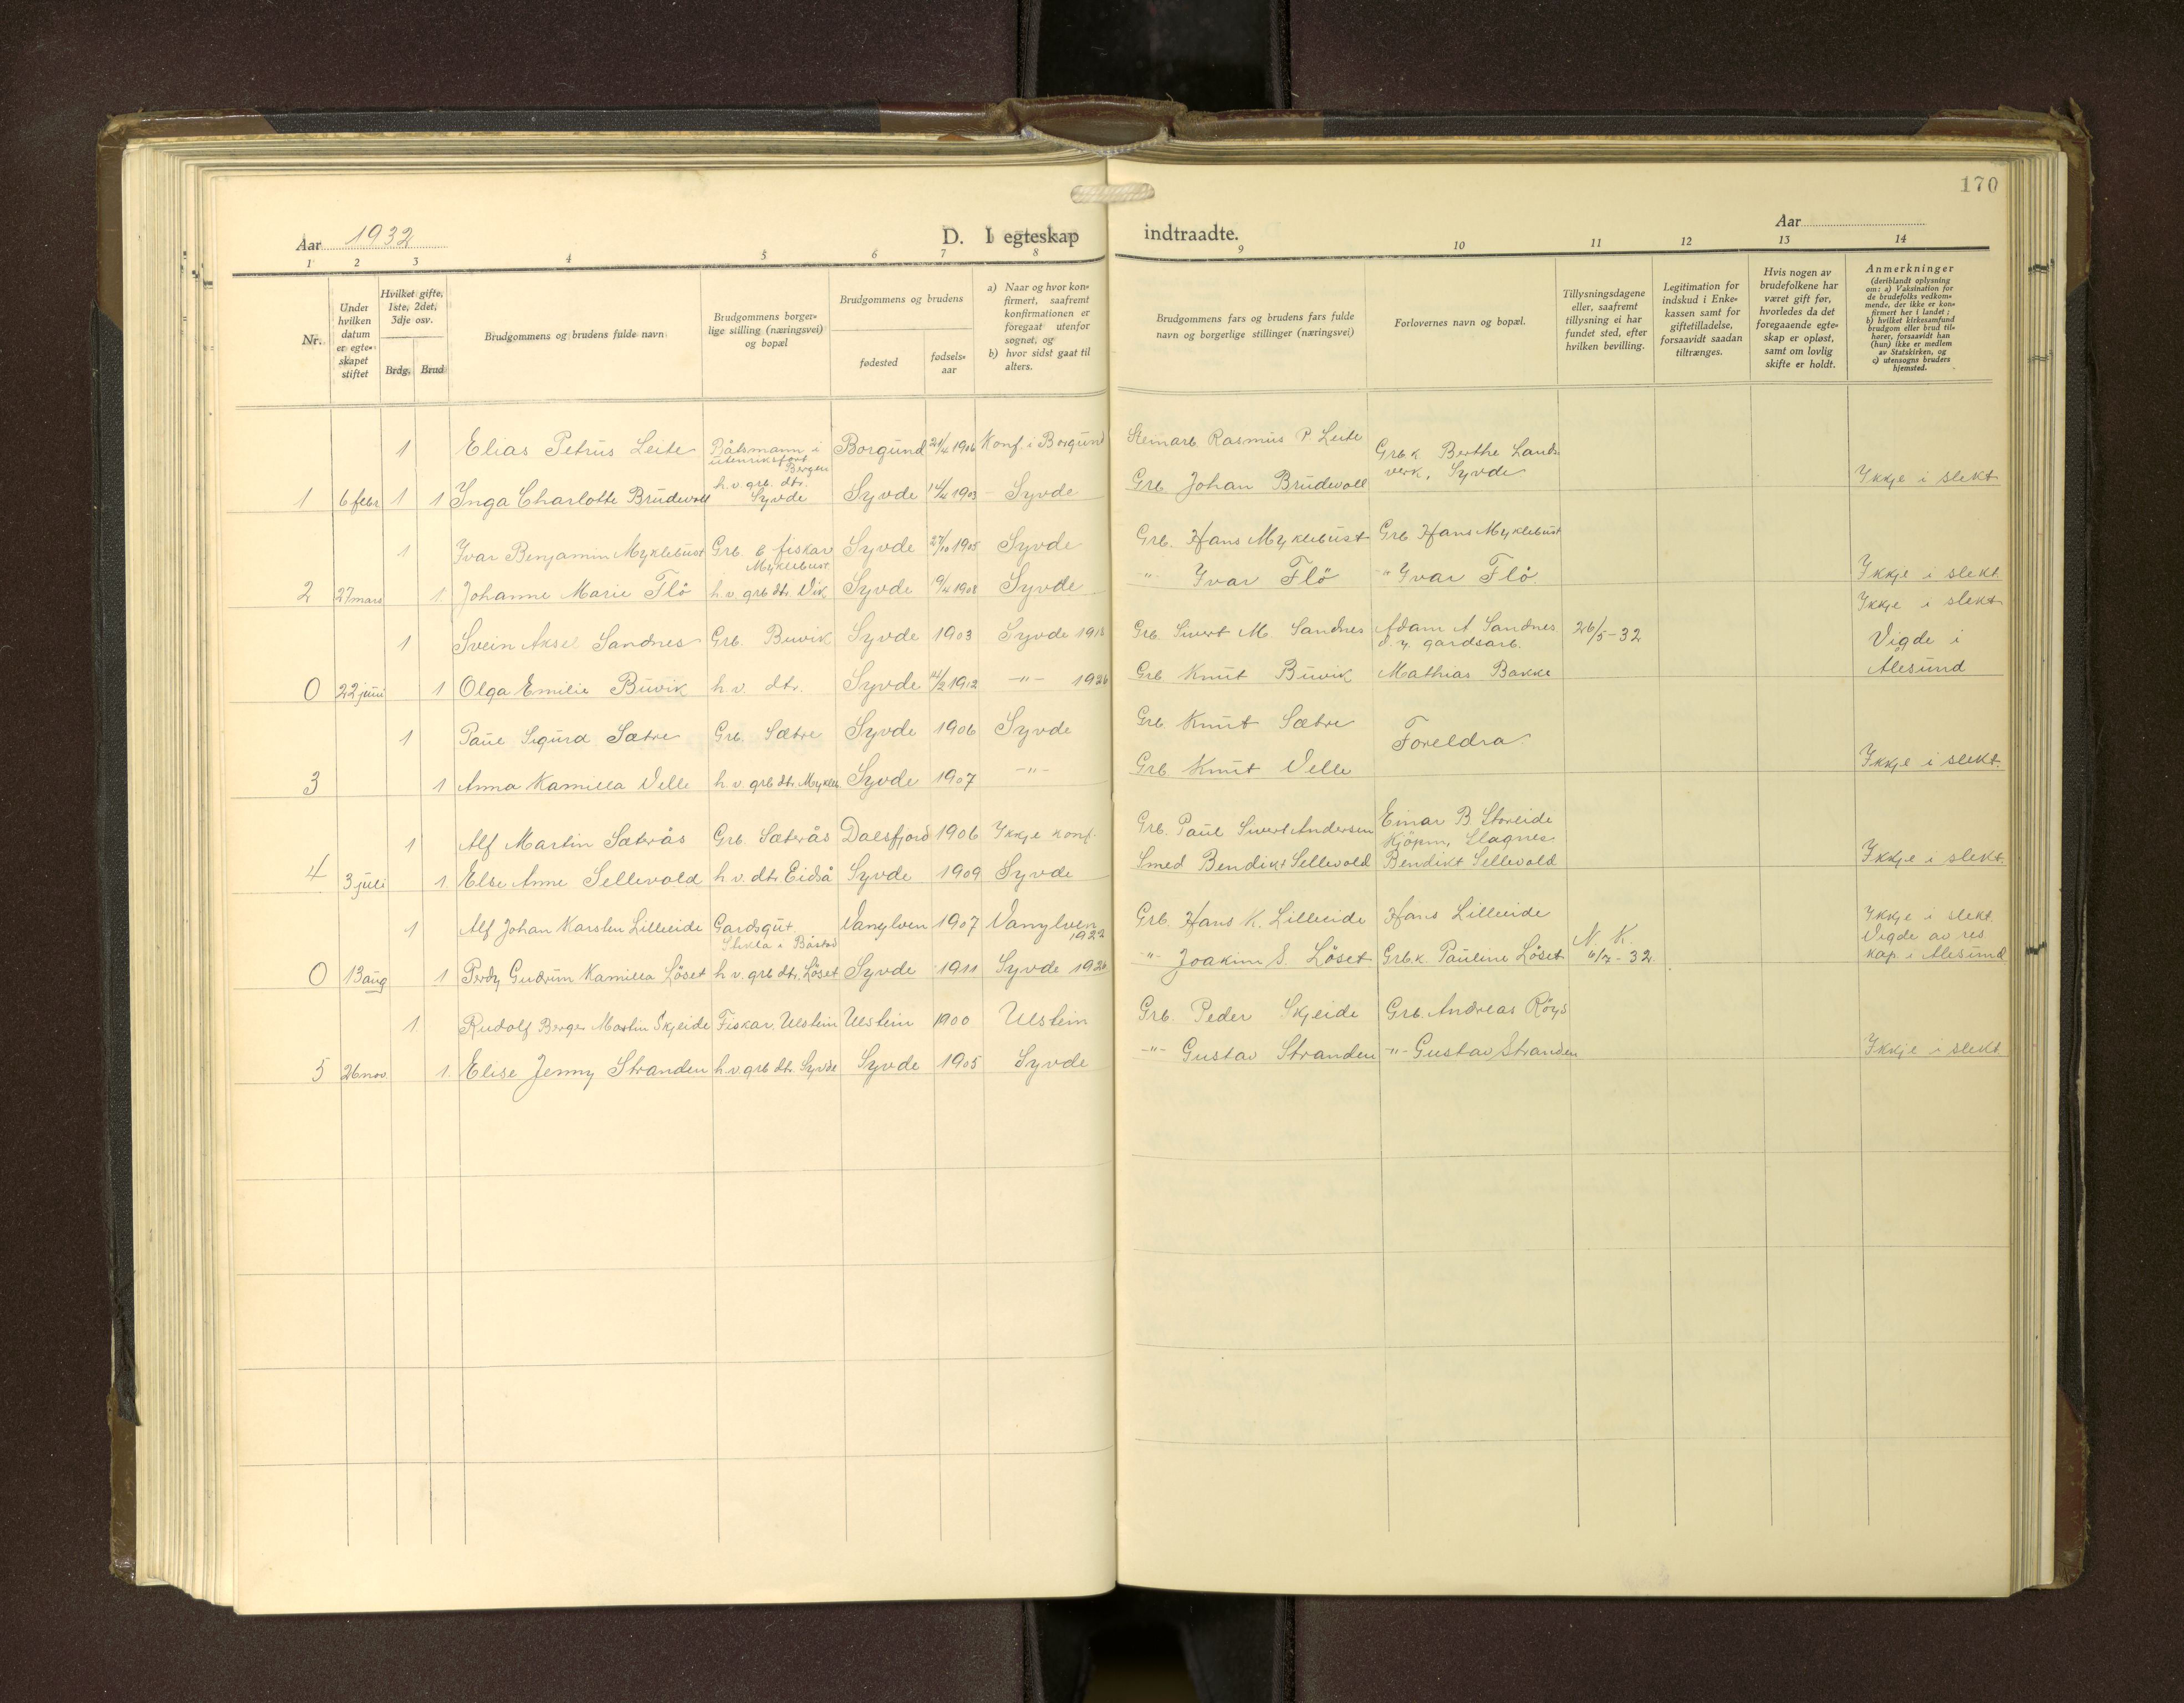 170
Aar 1932
D. I egteskap indtraadte.
Aar
1 2 3 4 5 6 7 8 9 10 11 12 13 14
Nr.
Under hvilken datum er egteskapet stiftet
Hvilket gifte, 1ste, 2det, 3dje osv.
Brdg. Brud
Brudgommens og brudens fulde navn
Brudgommens borgerlige stilling (næringsvei) og bopæl
Brudgommens og brudens
fødested
fødselsaar
a) Naar og hvor konfirmert, saafremt konfirmationen er foregaat utenfor sognet, og
b) hvor sidst gaat til alters.
Brudgommens fars og brudens fars fulde navn og borgerlige stillinger (næringsvei)
Forlovernes navn og bopæl.
Tillysningsdagene eller, saafremt tillysning ei har fundet sted, efter hvilken bevilling.
Legitimation for indskud i Enkekassen samt for giftetilladelse, forsaavidt saadan tiltrænges.
Hvis nogen av brudefolkene har været gift før, hvorledes da det foregaaende egteskap er opløst, samt om lovlig skifte er holdt.
Anmerkninger
(deriblandt oplysning om: a) Vaksination for de brudefolks vedkommende, der ikke er konfirmert her i landet; b) hvilket kirkesamfund brudgom eller brud tilhører, forsaavidt han (hun) ikke er medlem av Statskirken, og c) utensogns bruders hjemsted.
1 Elias Petrus Leite Båtsmann i utenriksfart Bergen Borgund 21/4 1906 Konf. i Borgund Steinarb. Rasmus P. Leite Grb.k Berthe Landverk, Syvde
1 6 febr 1 1 Inga Charlotte Brudevoll h.v. grb. dtr. Syvde Syvde 14/4 1903 - Syvde Grb Johan Brudevoll Ikkje i slekt
1 Ivar Benjamin Myklebust Grb & fiskar Myklebust Syvde 27/10 1905 Syvde Grb. Hans Myklebust Grb Hans Myklebust
2 27 mars 1. Johanne Marie Flö h.v. grb dtr. Vik Syvde 19/4 1908 Syvde -"- Ivar Flö -"- Ivar Flö Ikkje i slekt
1 Svein Aksel Sandnes Grb. Buvik Syvde 1903 Syvde 1918 Grb. Sivert M. Sandnes Adam A Sandnes d.y. gardsarb. 26/5-32 Ikkje i slekt
0 22 juni 1 Olga Emilie Buvik h.v. dtr. Syvde 1912 -"- 1926 Grb Knut Buvik Mathias Bakke Vigde i Ålesund
1 Paul Sigurd Sætre Grb. Sætre Syvde 1906 Syvde Grb Knut Sætre Foreldra.
3 1 Anna Kamilla Velle h.v. grb dtr. Mykleb. Syvde 1907 -"- Grb. Knut Velle Ikkje i slekt.
1 Alf Martin Sæterås Grb. Sæterås Dalsfjord 1906 Ikkje konf. Grb. Paul Sivert Andersen Einar B. Storeide Kjöpm, Slagnes
4 3 juli 1. Else Anne Sellevold h.v. dtr. Eidså Syvde 1909 Syvde Smed Bendikt Sellevold Bendikt Sellevold Ikkje i slekt.
1 Alf Johan Karsten Lilleeide Gardsgut Vanylven 1907 Vanylven 1922 Grb. Hans K. Lilleeide Hans Lilleeide N. K. Ikkje i slekt.
0 13 aug 1 Perdy Gudrun Kamilla Löset h.v. grb dtr. Löset Syvde 1911 Syvde 1926 -"- Joakim S. Löset Grb.k Pauline Löset 6/7-32. Vigde av res kap. i Ålesund
1. Rudolf Berger Martin Skjeide Fiskar, Ulstein Ulstein 1900 Ulstein Grb. Peder Skjeide Grb. Andreas Röys
5 26 nov. 1. Elise Jenny Stranden h.v. grb dtr. Syvde Syvde 1905 Syvde -"- Gustav Stranden -"- Gustav Stranden Ikkje i slekt